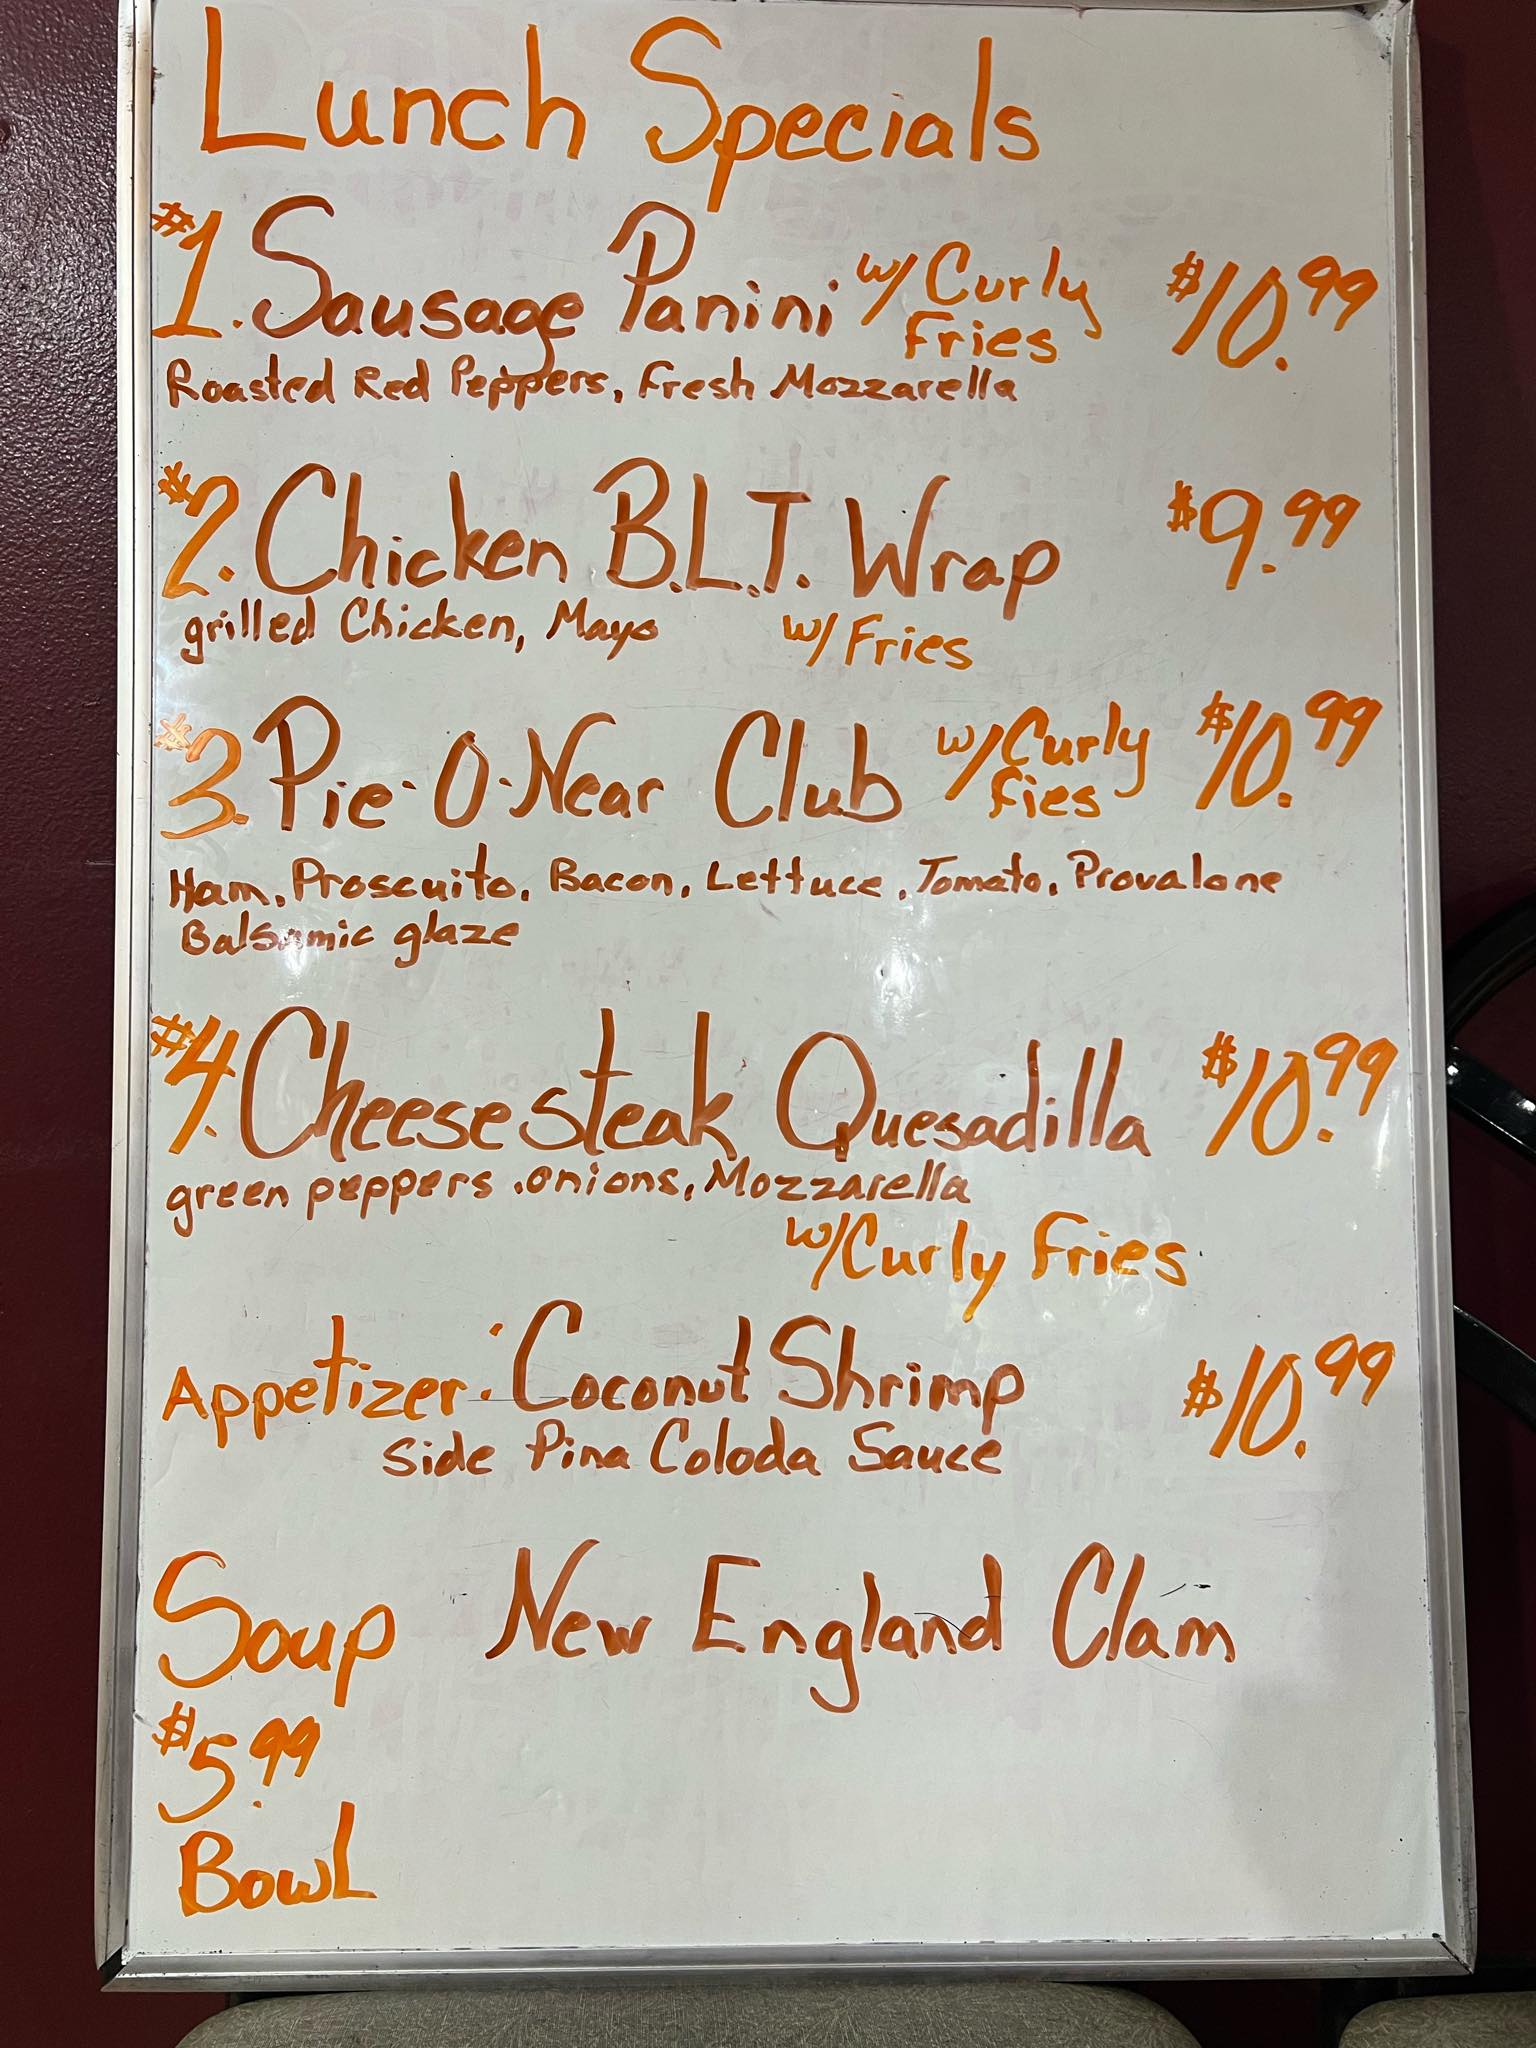 Lunch Specials
#1. Sausage Panini w/ Curly Fries $10.99
Roasted Red Peppers, Fresh Mozzarella
#2. Chicken B.L.T. Wrap $9.99
grilled Chicken, Mayo w/ Fries
#3. Pie-O-Near Club w/ Curly fies $10.99
Ham, Proscuito, Bacon, Lettuce, Tomato, Provalone
Balsamic glaze
#4. Cheesesteak Quesadilla $10.99
green peppers, onions, Mozzarella
w/ Curly Fries
Appetizer: Coconut Shrimp $10.99
Side Pina Coloda Sauce
Soup New England Clam
$5.99
Bowl